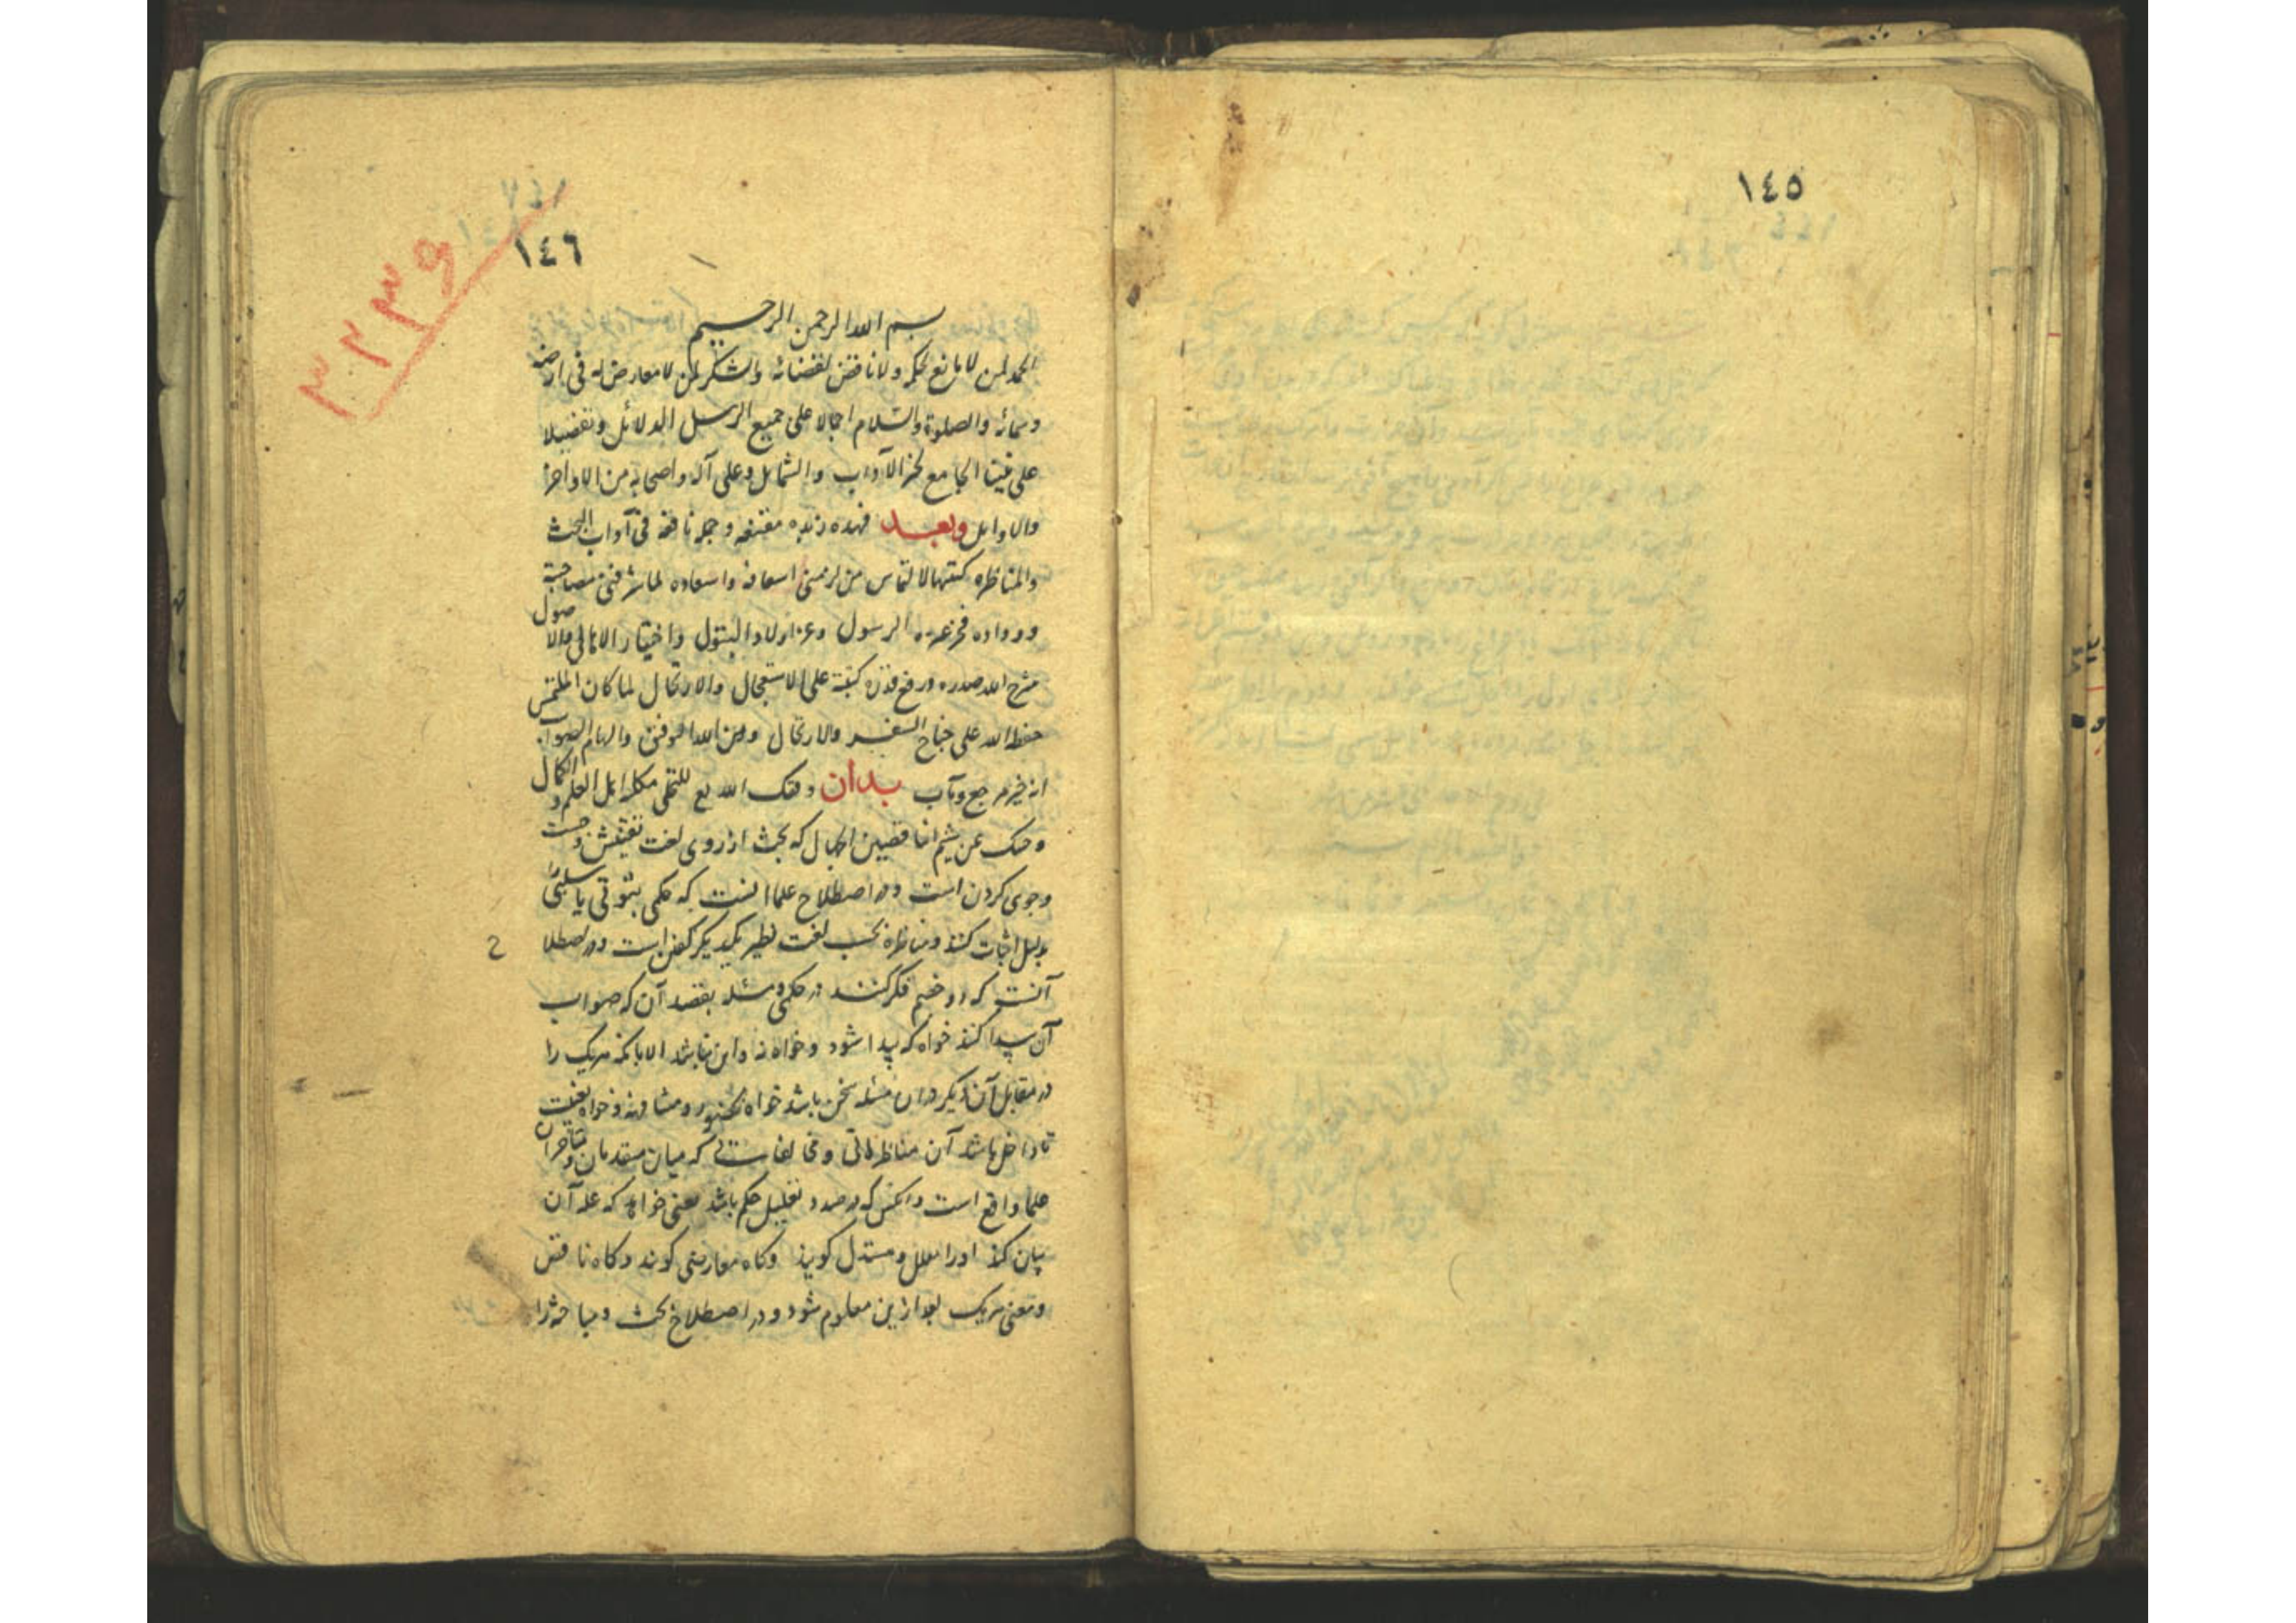 ١٤٥
١٤٦
٣٢٣٩
بسم الله الرحمن الرحيم
الحمد لمن لا مانع لحكمه ولا ناقض لقضائه والشكر لمن لا معارض له فى ارضه
وسمائه والصلوة والسلام اجمالا على جميع الرسل الدلائل وتفصيلا
على نبينا الجامع الآداب والشمايل وعلى آله واصحابه من الاواخر
والاوايل وبعد فهذه زبده مقنعه وجمله نافعه فى آداب البحث
والمناظره كتبتها لالتماس من لزمنى اسعافه واسعاده لما شرفنى مصاحبته
ووداده فخر عترة الرسول وعز اولاد البتول
شرح الله صدره ورفع قدره كتبته على الاستعجال والارتجال لما كان الملتمس
حفظه الله على جناح السفر والارتحال ومن الله التوفيق والهام الصواب
انه خير مرجع ومآب بدان وفقك الله تع اهل العلم و الكمال
وصك عن شيم كه بحث از روى لغت تفتيش و جست
وجوى كردن است ودر اصطلاح علما آنست كه حكمى ثبوتى يا سلبى را
بدليل اثبات كنند ومناظره بحسب لغت نظير يكديكر كفتن است ودر اصطلا
ح
آنست كه دو خصم فكر كنند در حكمى ومسئله بقصد آن كه صواب
آن پيدا كنند خواه كه پيدا شود وخواه نه واين نباشد الا بانكه هريك را
در مقابل آن ديكر در ان مسئله سخن باشد خواه بحضور ومشافهه وخواه بغيبت
تا داخل باشد آن مناظراتى ومخالفاتى كه ميان متقدمان و متأخران
علما واقع است وانكس كه در صدد تعليل حكم باشد يعنى خواهد كه علة آن
بيان كند اورا معلل ومستدل كويند وكاه معارض كويند وكاه ناقض
ومعنى هريك بعد ازين معلوم شود ودر اصطلاح بحث ومباحثه را